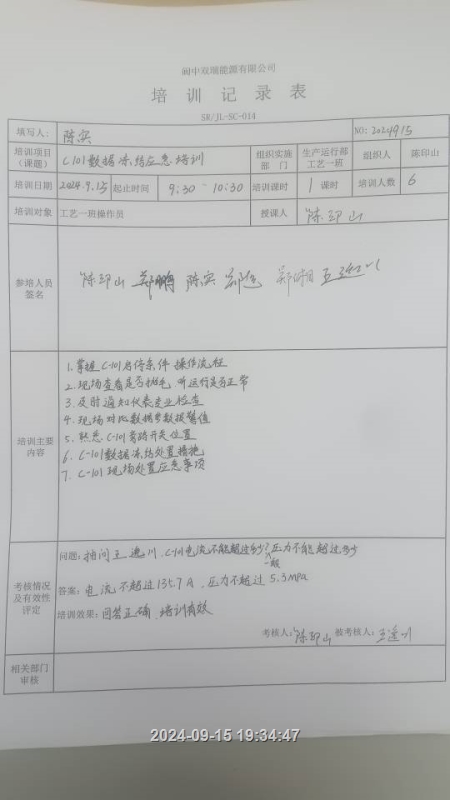 阆中双瑞能源有限公司
培训记录表
SR/JL-SC-014
填写人: 陈实 NO: 2024915
培训项目(课题) C101数据冻结应急培训 组织实施部门 生产运行部工艺一班 组织人 陈印山
培训日期 2024.9.15 起止时间 9:30-10:30 培训课时 1课时 培训人数 6
培训对象 工艺一班操作员 授课人 陈印山
参培人员签名 陈印山 郑鹏 陈实
培训主要内容
1. 掌握C-101启停条件 操作流程
2. 现场查看是否抛毛 听运行是否正常
3. 及时通知仪表专业检查
4. 现场对比数据参数报警值
5. 熟悉C-101旁路开关位置
6. C-101数据冻结处置措施
7. C-101现场处置应急事项
考核情况及有效性评定
问题: 抽问王远川, C-101电流不能超过多少?压力不能超过多少
一般
答案: 电流不超过135.7A, 压力不超过5.3MPa
培训效果: 回答正确, 培训有效
考核人: 陈印山 被考核人: 王远川
相关部门审核
2024-09-15 19:34:47